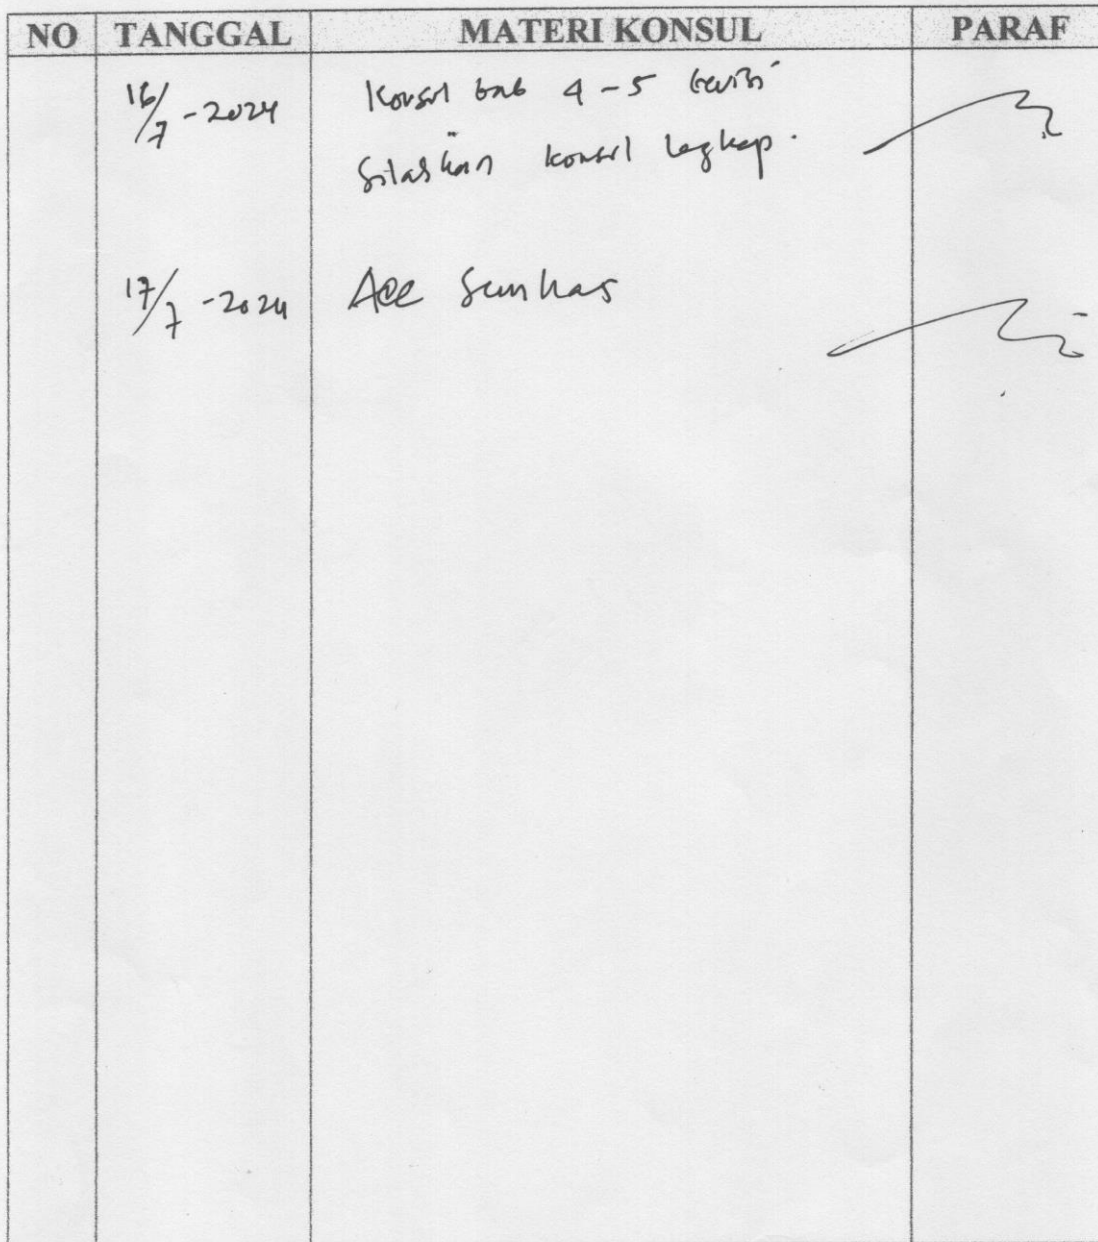 NO TANGGAL MATERI KONSUL PARAF
16/7-2024 Konsul bab 4-5 revisi
Silahkan konsul lengkap.
17/7-2024 Acc Semhas